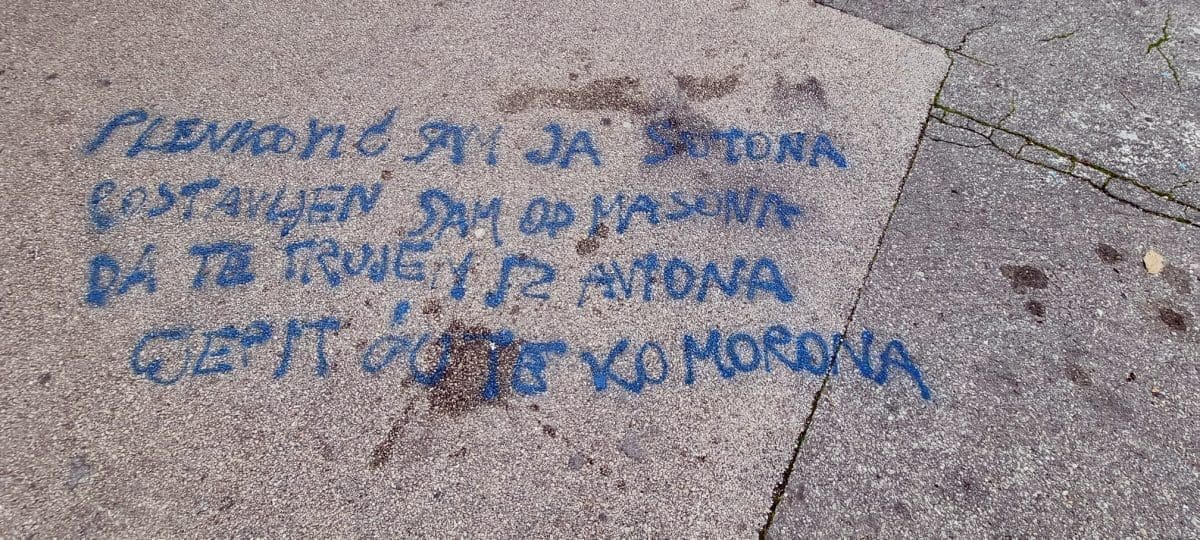 PLENKOVIĆ SAM JA SOTONA
POSTAVLJEN SAM OD MASONA
DA TE TRUJEM IZ AVIONA
CJEPIT ĆU TE KO MORONA